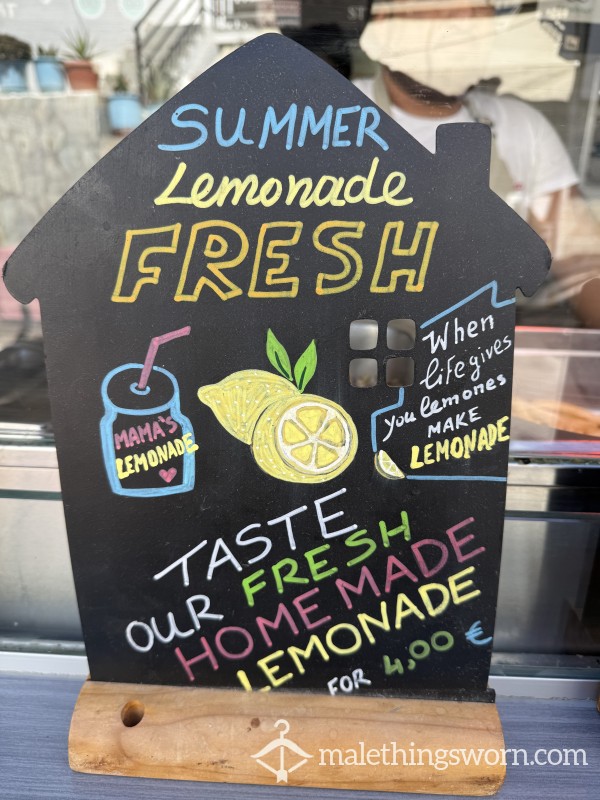 SUMMER
Lemonade
FRESH
When
life gives
you lemones
MAKE
LEMONADE
MAMA'S
LEMONADE
TASTE
OUR FRESH
HOME MADE
LEMONADE
FOR 4,00 €
malethingsworn.com